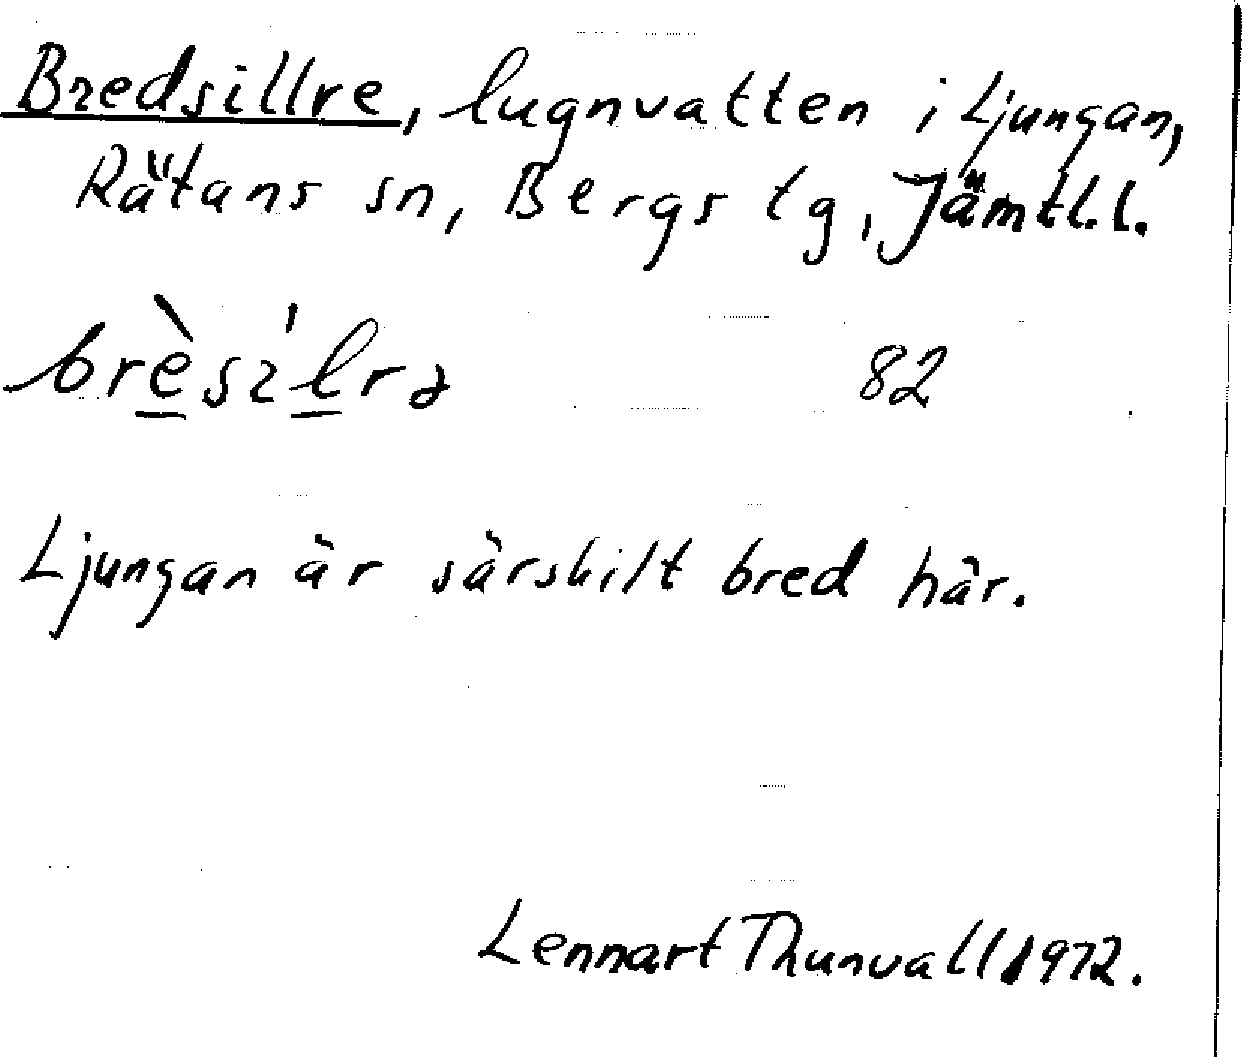 Bredsillre, lugnvatten i Ljungan,
Rätans sn, Bergs tg, Jämtl.l.
brèsı́lrə 82
Ljungan är särskilt bred här.
Lennart Thunvall 1972.